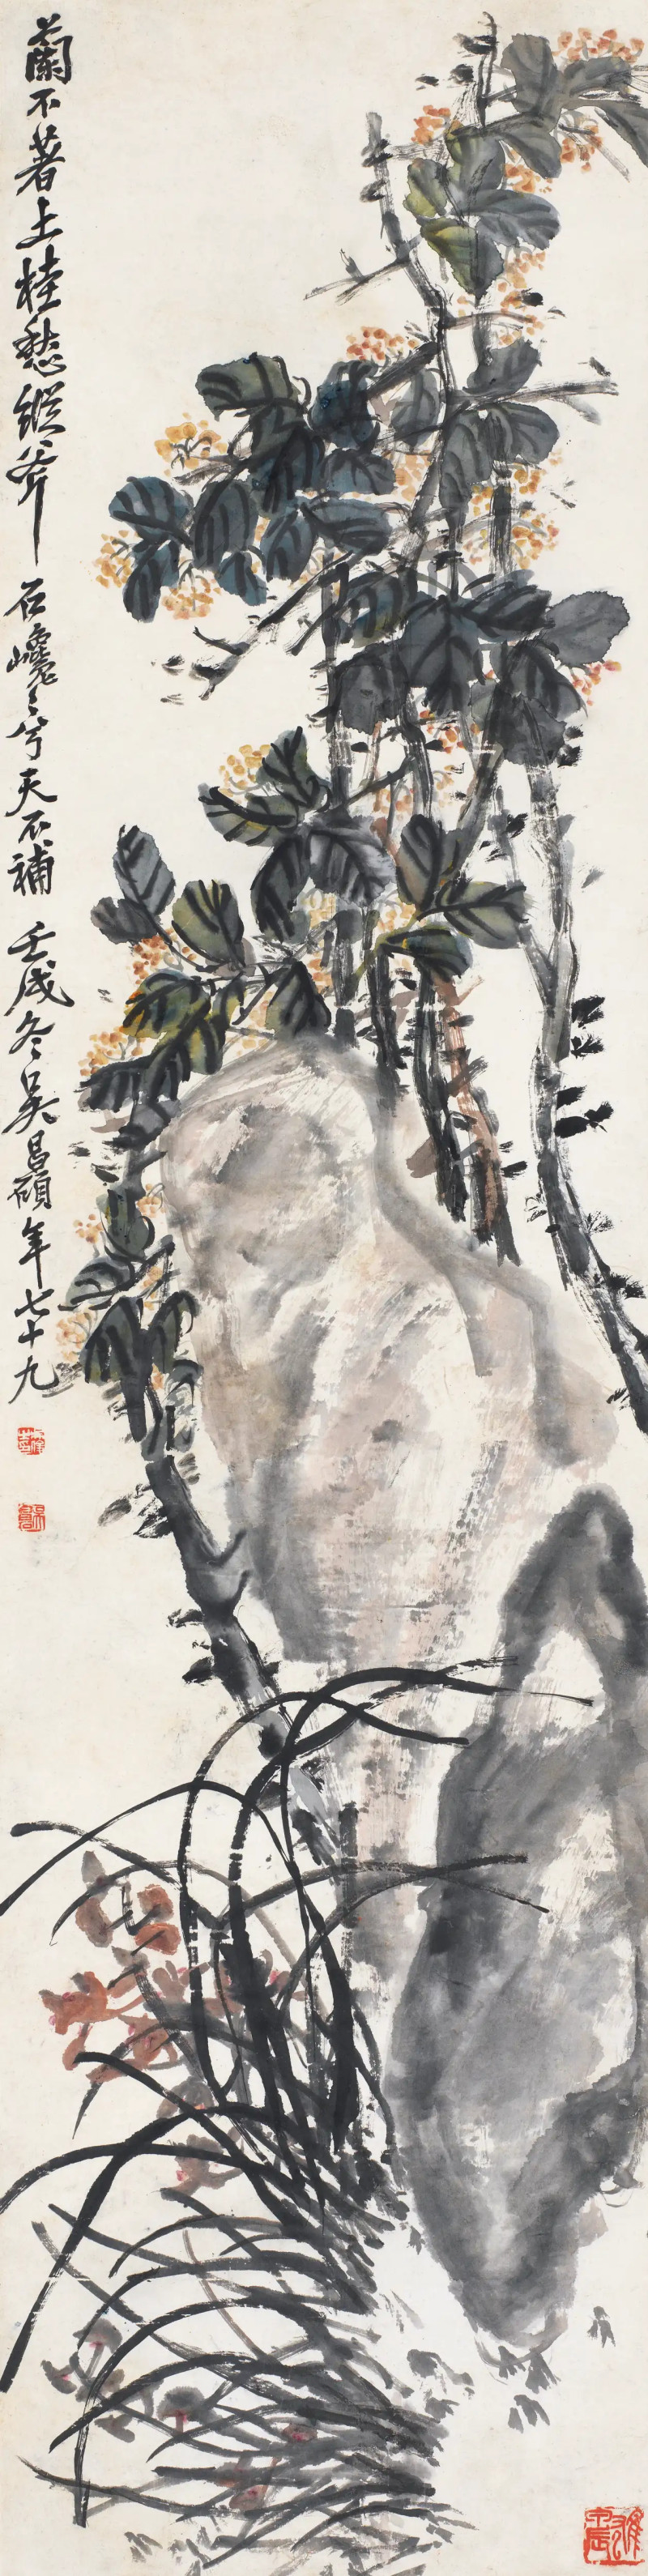 蘭不著土桂愁縱斧 石巉巉兮天不補 壬戌冬吳昌碩年七十九